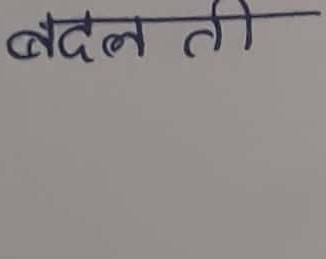 बदल ती